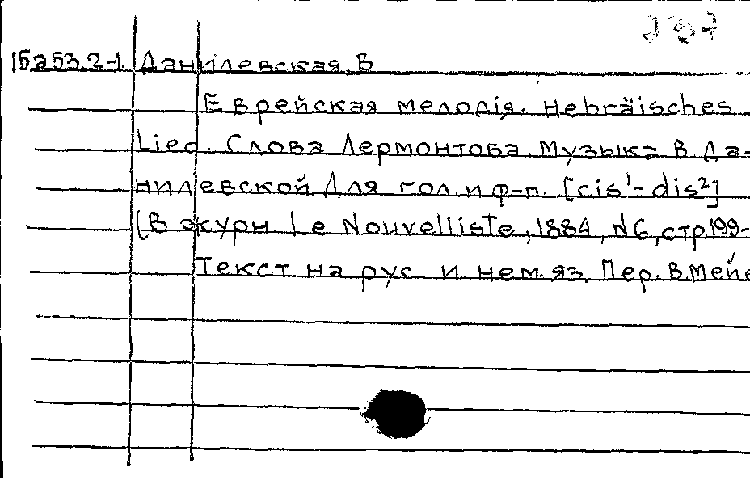 15253.2-1. Данилевская В
Еврейская мелодія. Hebräisches
Lied. Слова Лермонтова Музыка В. Да-
нилевской Для гол. и ф-п. [cis¹-dis²]
(В журн Le Nouvelliste, 1884, N6, стр 199-
Текст на рус. и нем. яз. Пер. В. Мейе